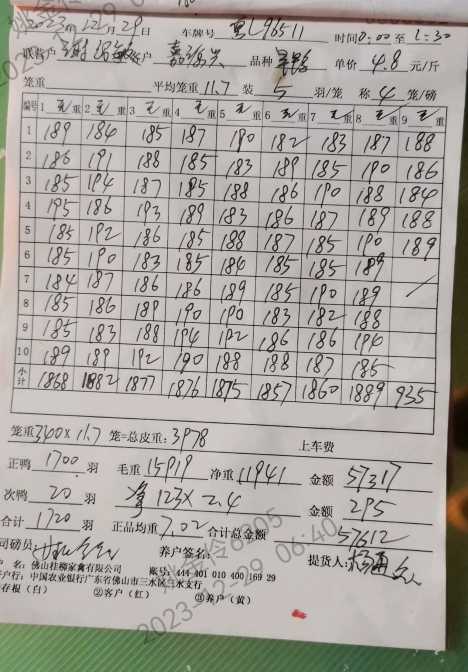 2023年12月29日 车牌号 L96511 时间0:00至1:30
客户 嘉 品种 单价 4.8 元/斤
笼重 平均笼重 11.7 装 5 羽/笼 称 4 笼/磅
编号 1 毛重 2 毛重 3 毛重 4 毛重 5 毛重 6 毛重 7 毛重 8 毛重 9 毛重
1 189 184 185 187 190 182 183 187 188
2 186 191 188 185 183 189 185 190 186
3 185 194 187 185 188 186 190 188 184
4 195 186 193 189 183 186 187 189 188
5 185 192 186 185 188 187 185 190 189
6 185 190 183 185 184 185 185 189
7 184 187 186 186 189 185 190 189
8 185 186 189 190 190 183 182 188
9 185 183 188 194 192 186 186 194
10 189 189 192 190 188 188 187 185
小计 1868 1882 1877 1876 1875 1857 1860 1889 935
笼重 340×11.7 笼=总皮重: 3978 上车费
正鸭 1700 羽 毛重 15919 净重 11941 金额 57317
次鸭 20 羽 123×2.4 金额 295
合计 1720 羽 正品均重 7.02 合计总金额 57612
司磅员: 养户签名: 提货人:
名: 佛山桂柳家禽有限公司 账号: 444 401 010 400 169 29
户行: 中国农业银行广东省佛山市三水区三水支行
存根（白） ②客户（红） ③养户（黄）
姚金伶8205
2023-12-29 06:40